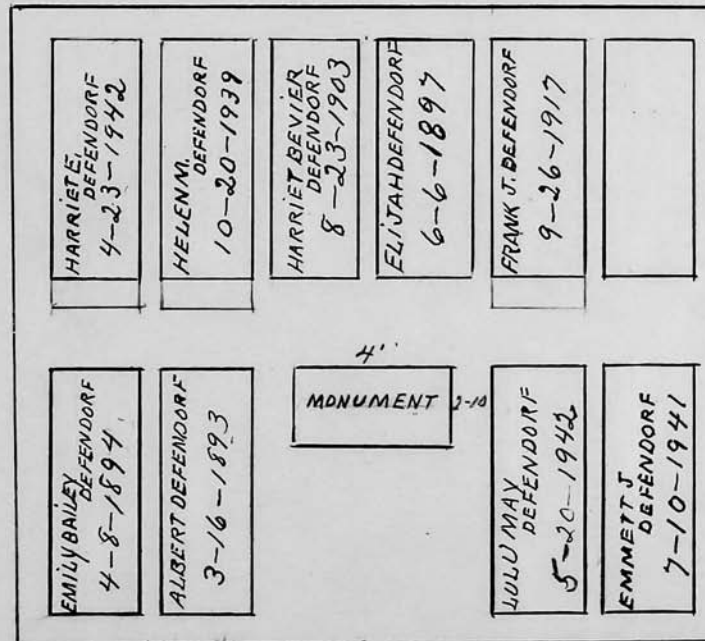 HARRIET E.
DEFENDORF
4-23-1942
HELEN M.
DEFENDORF
10-20-1939
HARRIET BEVIER
DEFENDORF
8-23-1903
ELIJAH DEFENDORF
6-6-1897
FRANK J. DEFENDORF
9-26-1917
4'
MONUMENT
2-10
EMILY BAILEY
DEFENDORF
4-8-1894
ALBERT DEFENDORF
3-16-1893
LULU MAY
DEFENDORF
5-20-1942
EMMETT J
DEFENDORF
7-10-1941